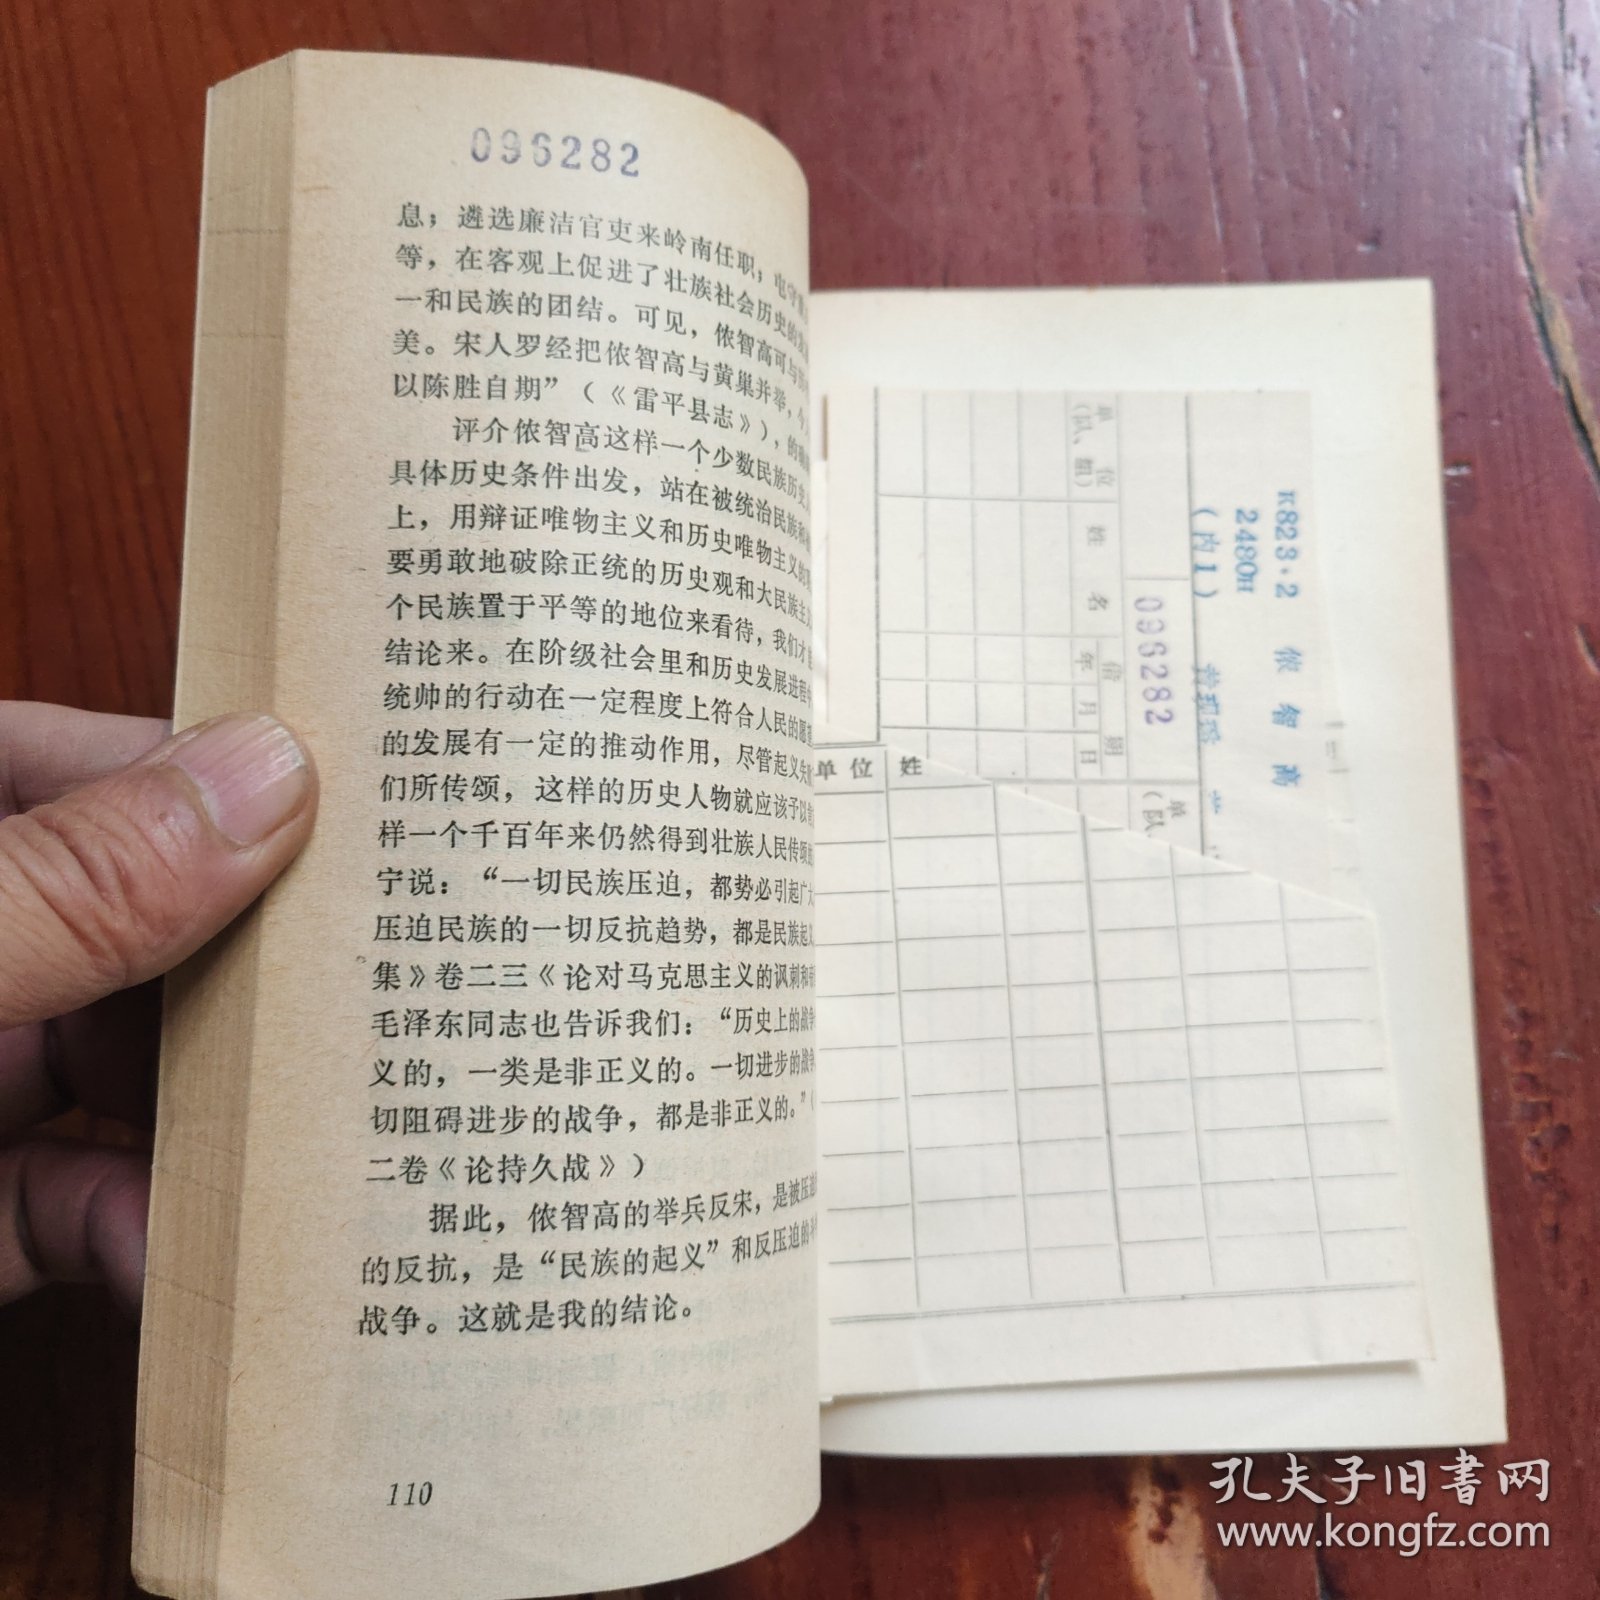 096282
息；遴选廉洁官吏来岭南任职；屯守
等，在客观上促进了壮族社会历史的发
一和民族的团结。可见，侬智高可与
美。宋人罗经把侬智高与黄巢并举，今
以陈胜自期”（《雷平县志》），的确
评介侬智高这样一个少数民族历史
具体历史条件出发，站在被统治民族和
上，用辩证唯物主义和历史唯物主义的
要勇敢地破除正统的历史观和大民族主义
个民族置于平等的地位来看待，我们才
结论来。在阶级社会里和历史发展进程中
统帅的行动在一定程度上符合人民的愿望
的发展有一定的推动作用，尽管起义失败
们所传颂，这样的历史人物就应该予以
样一个千百年来仍然得到壮族人民传颂的
宁说：“一切民族压迫，都势必引起广大
压迫民族的一切反抗趋势，都是民族起义
集》卷二三《论对马克思主义的讽刺和
毛泽东同志也告诉我们：“历史上的战争
义的，一类是非正义的。一切进步的战争
切阻碍进步的战争，都是非正义的。”（
二卷《论持久战》）
据此，侬智高的举兵反宋，是被压迫
的反抗，是“民族的起义”和反压迫的
战争。这就是我的结论。
110
K823·2 侬智高
2480H
（内1）
096282
单位（队、组） 姓名 借期 年月日
单（队
单位 姓
孔夫子旧书网
www.kongfz.com